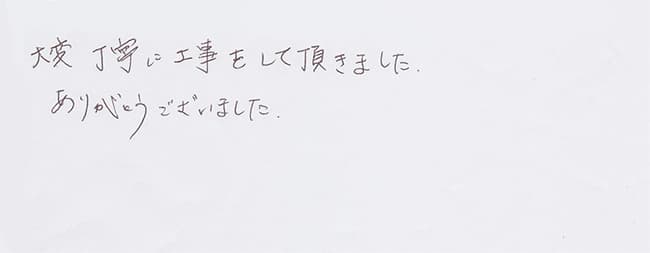 大変丁寧に工事をして頂きました.
ありがとうございました.